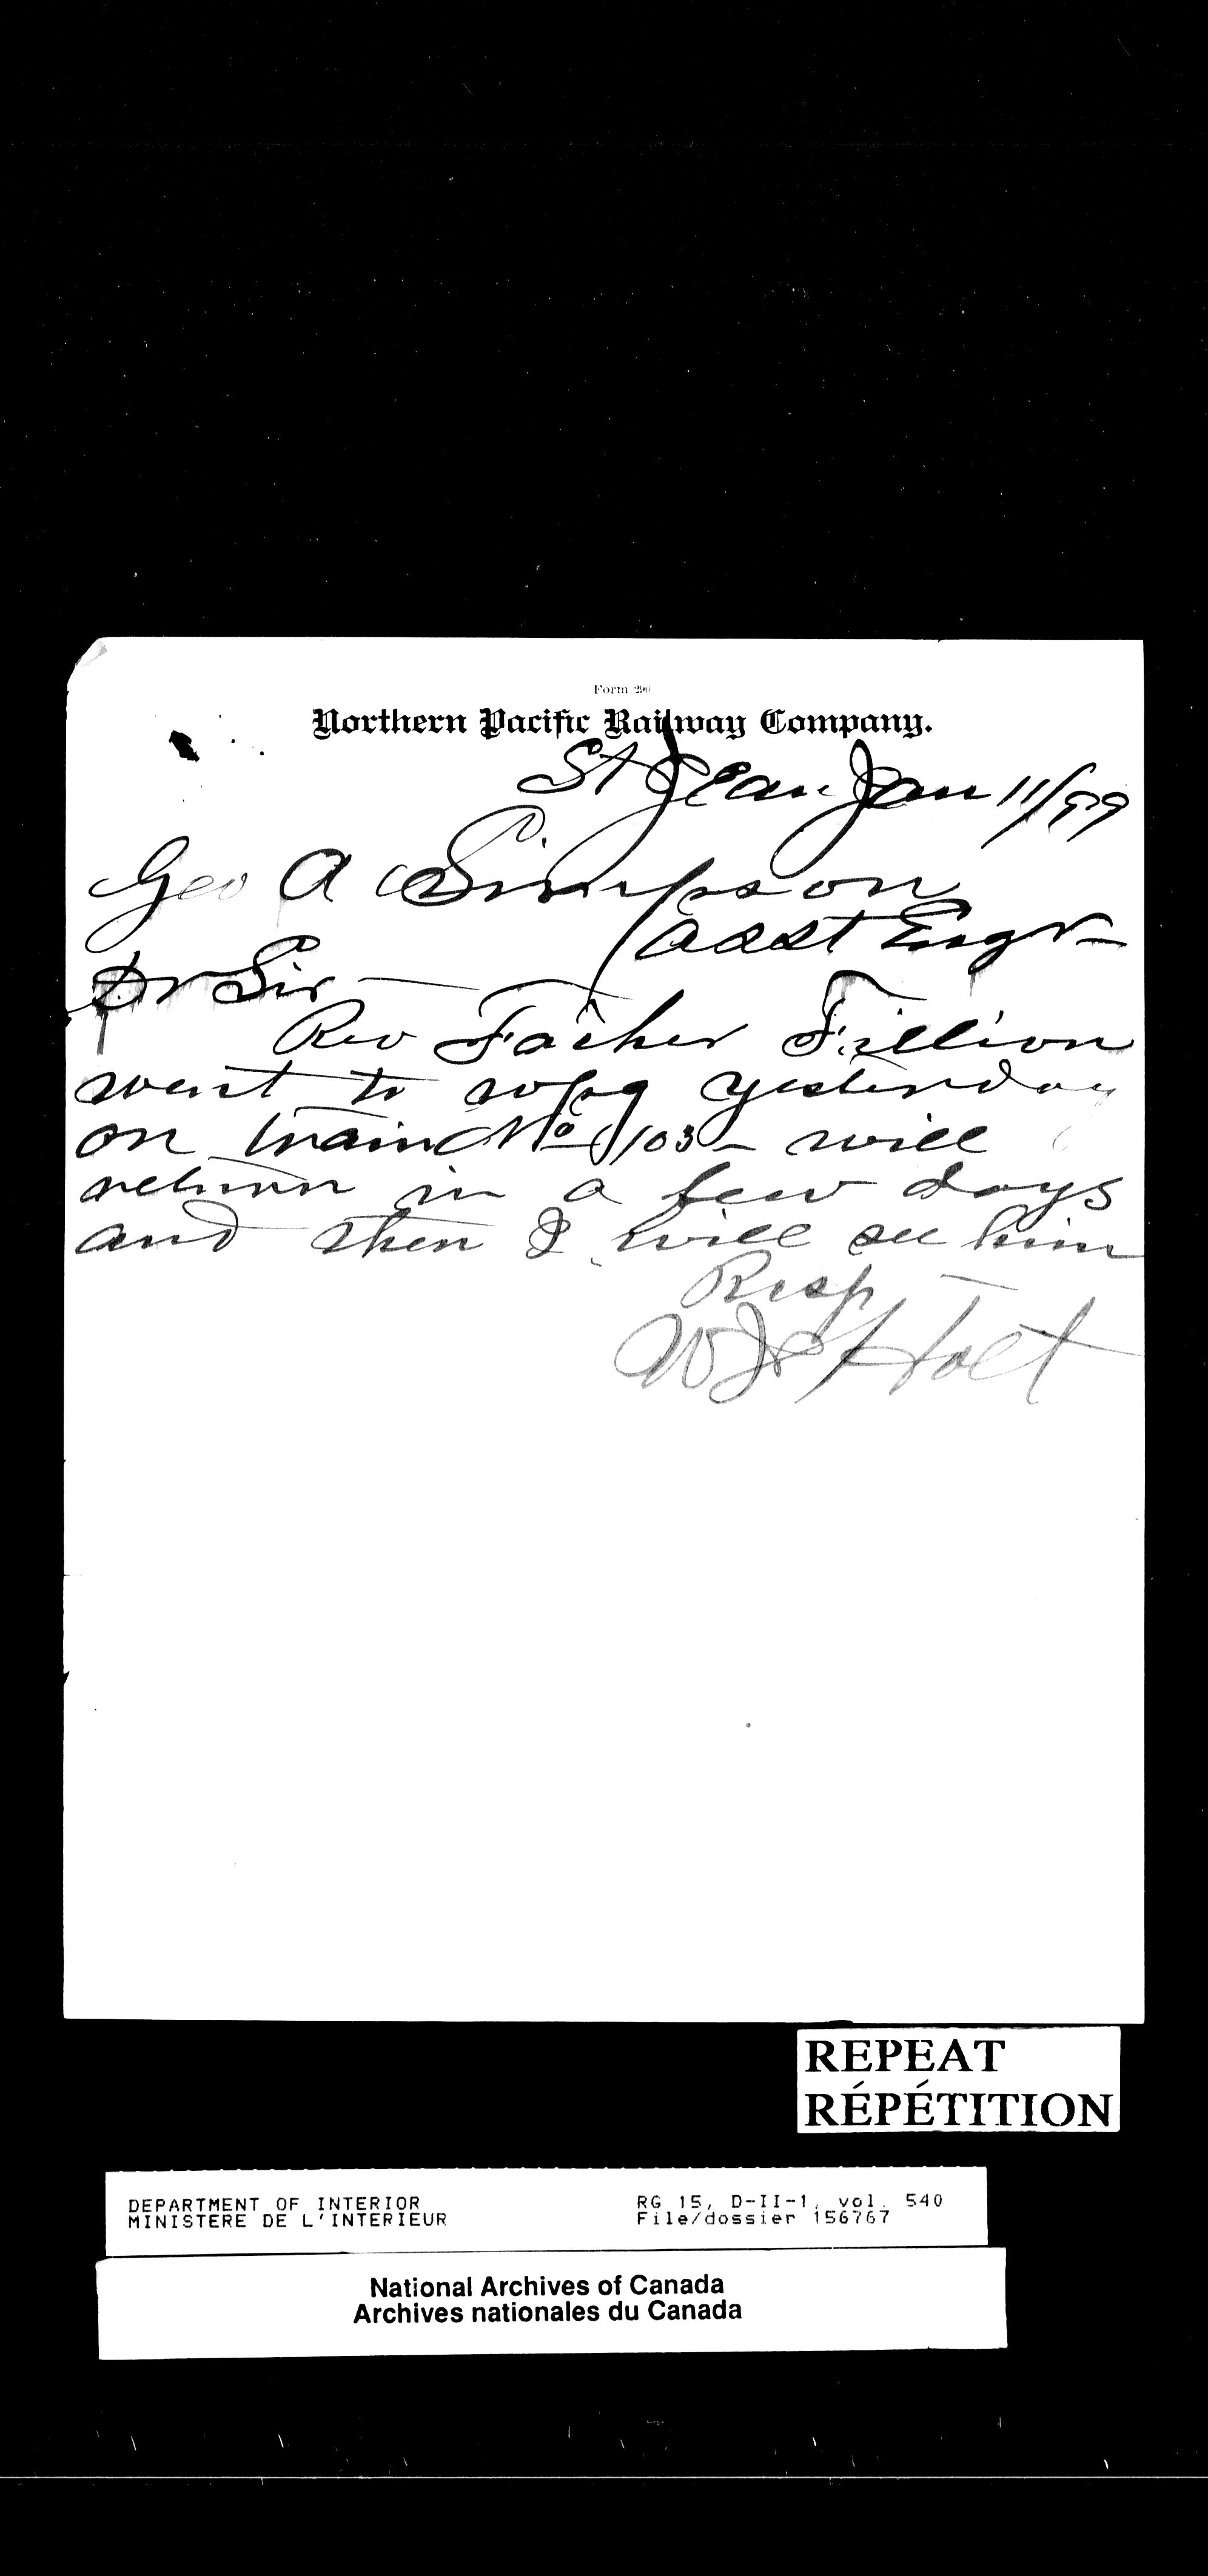 Form 290
Northern Pacific Railway Company.
St Jean Jan 11/99
Geo A Simpson
Asst Engr
Dr Sir
Rev Father Fillion
went to wpg yesterday
on train No 103 - will
return in a few days
and then I will see him
Resp
Holt
REPEAT
RÉPÉTITION
DEPARTMENT OF INTERIOR RG 15, D-II-1, vol. 540
MINISTERE DE L'INTERIEUR File/dossier 156767
National Archives of Canada
Archives nationales du Canada